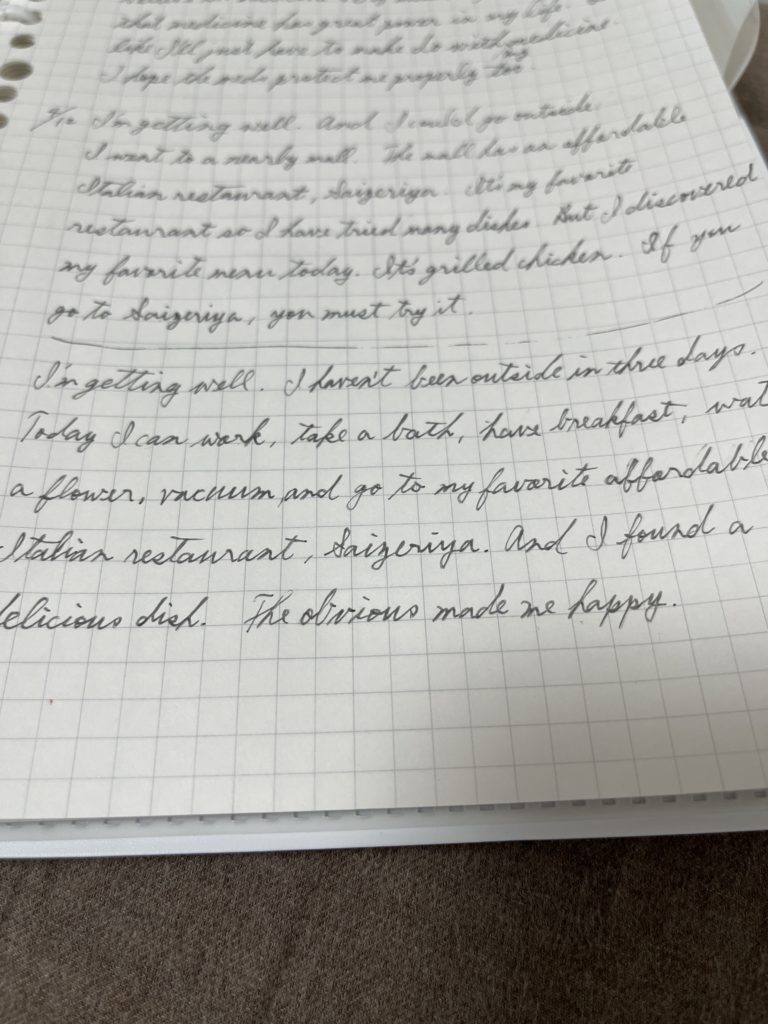 that medicine has great power in my life.
like I'll just have to make do with medicine.
my
I hope the meds protect me properly too.
9/12 I'm getting well. And I could go outside.
I went to a nearby mall. The mall has an affordable
Italian restaurant, Saizeriya. It's my favorite
restaurant so I have tried many dishes. But I discovered
my favorite menu today. It's grilled chicken. If you
go to Saizeriya, you must try it.
I'm getting well. I haven't been outside in three days.
Today I can work, take a bath, have breakfast, wat
a flower, vacuum, and go to my favorite affordable
Italian restaurant, Saizeriya. And I found a
elicious dish. The obvious made me happy.